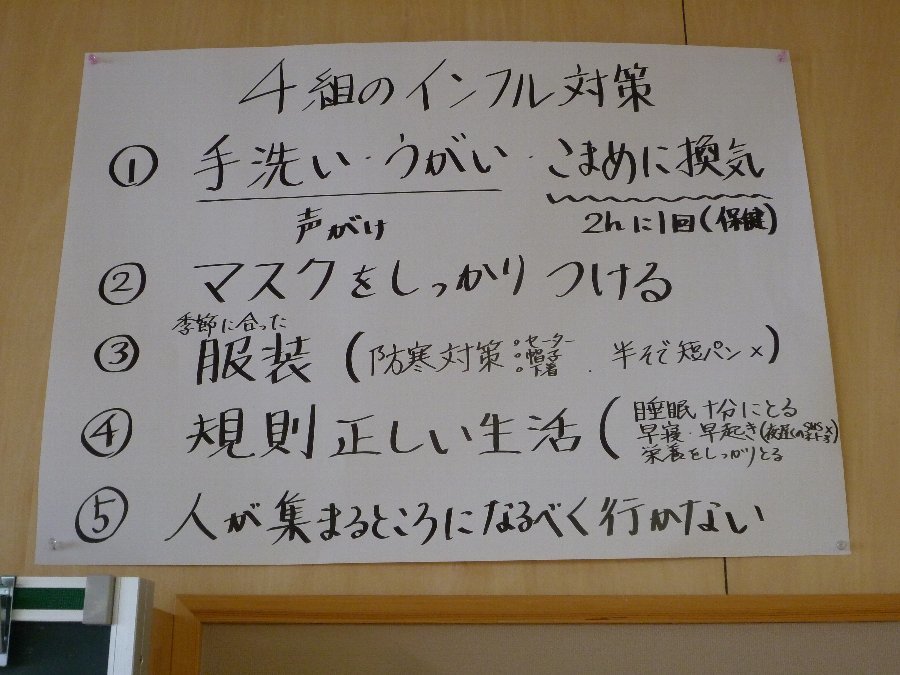 4組のインフル対策
① 手洗い・うがい・こまめに換気
声がけ 2hに1回(保健)
② マスクをしっかりつける
季節に合った
③ 服装(防寒対策 。セーター 。帽子 。下着 . 半そで短パン×)
④ 規則正しい生活(睡眠十分にとる
早寝・早起き(夜遅くのSNS×
栄養をしっかりとる
⑤ 人が集まるところになるべく行かない